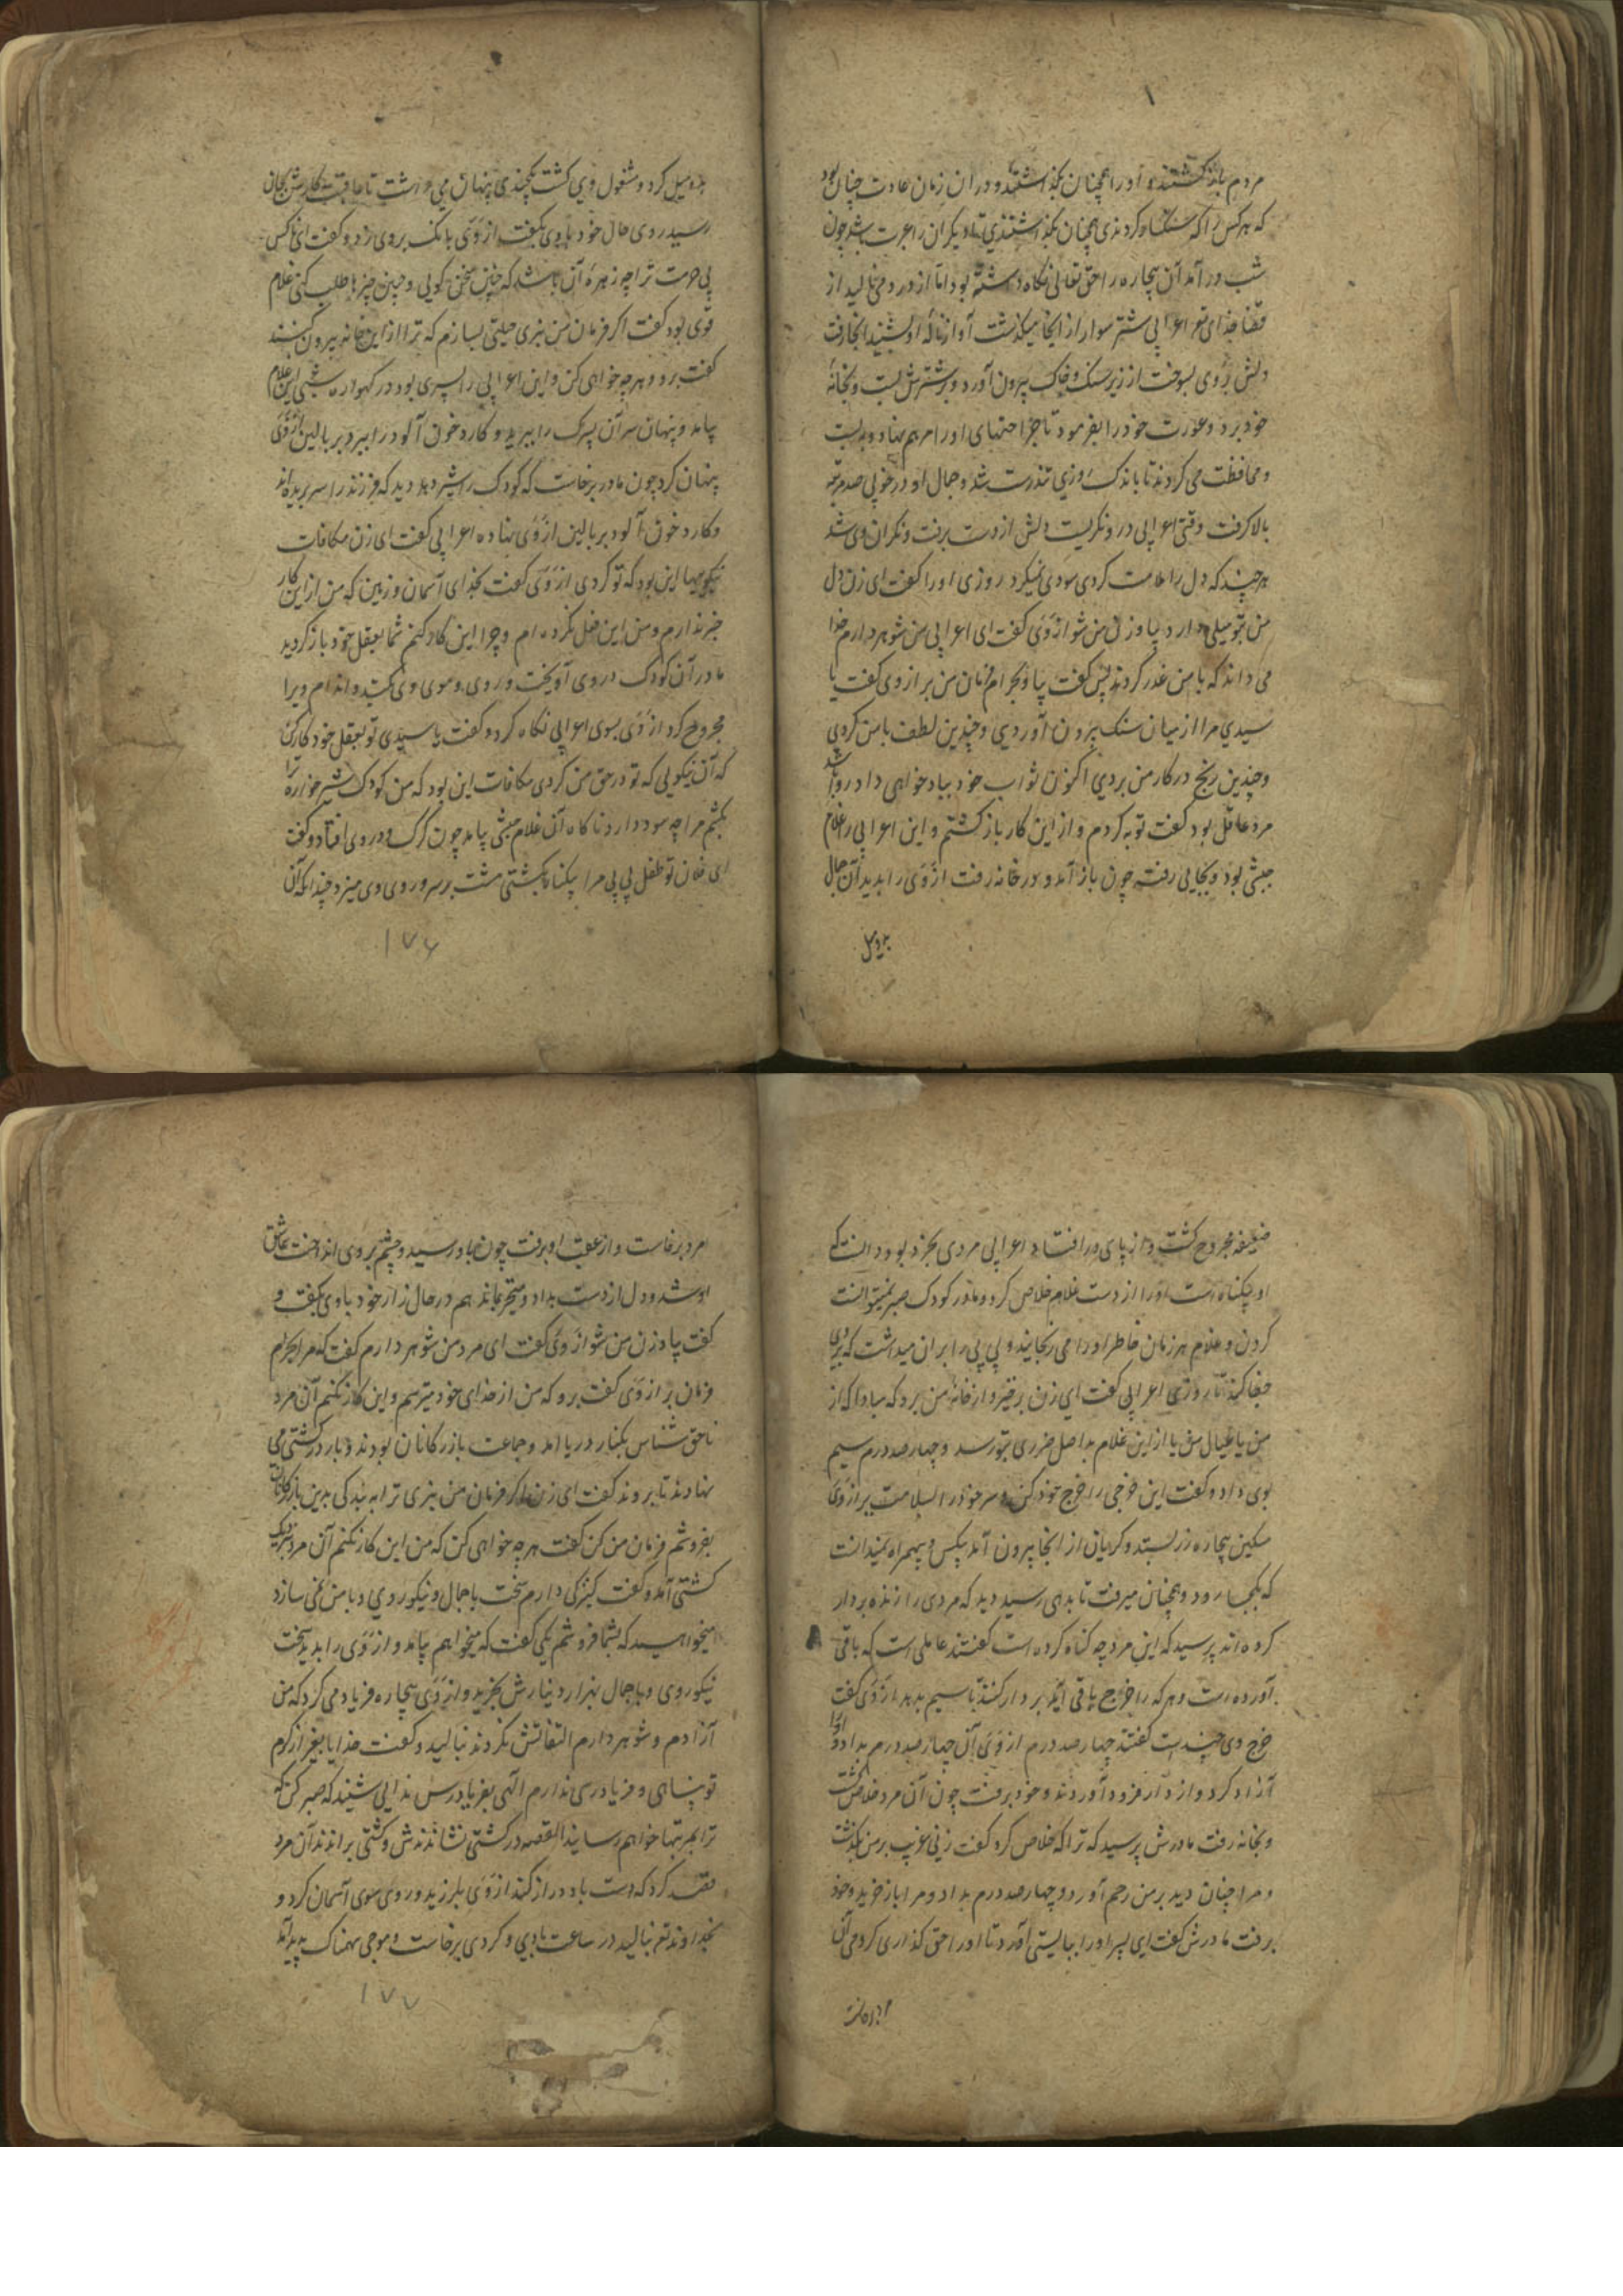 مردم باز کشتند و او را همچنان بکذاشتند و در ان زمان عادت چنان بود
که هر کس را که سنکسار کردندی همچنان بکذاشتندی تا دیکران را عبرت باشد چون
شب در آمد آن بیچاره را حق تعالی نکاه داشته بود اما از درد می نالید از
قضا خدای تع اعرابی شتر سوار از انجا میکذشت آواز نالهٔ او بشنید انجا رفت
دلش بر وی بسوخت از زیر سنک و خاک بیرون آورد و بر شترش بست و بخانهٔ
خود برد و عورت خود را بفرمود تا جراحتهای او را مرهم نهاد و به بست
و محافظت می کردند تا باندک روزی تندرست شد و جمال او در خوبی صد مرتبه
بالا کرفت وقتی اعرابی در و نکریست دلش از دست برفت و نکران وی شد
هر چند که دل را ملامت کردی سودی نمیکرد روزی او را کفت ای زن دل
من بتو میلی دارد بیا و زن من شو ازوی کفت ای اعرابی من شوهر دارم خدا
می داند که با من غدر کردند پس کفت بیا و بحرام فرمان من بر ازوی کفت یا
سیدی مرا از میان سنک بیرون آوردی و چندین لطف با من کردی
و چندین رنج در کار من بردی اکنون ثواب خود بباد خواهی داد روا باشد
مرد عاقل بود کفت توبه کردم و از این کار باز کشتم و این اعرابی را غلام
حبشی بود و بجایی رفته چون باز آمد و در خانه رفت ازوی را بدید آن جمال
بدو میل
بدو میل کرد و مشغول وی کشت یکچندی پنهان می داشت تا عاقبت کارش بجان
رسید روی حال خود با وی بکفت ازوی بانک بر وی زد و کفت ای ناکس
بی حرمت ترا چه زهرهٔ آن باشد که چنین سخن کویی و چنین چیزها طلب کنی غلام
قوی بود کفت اکر فرمان من نبری حیلتی بسازم که ترا از این خانه بیرون کنند
کفت برو و هر چه خواهی کن و این اعرابی را پسری بود در کهواره شبی این غلام
بیامد و پنهان سر آن پسرک را ببرید و کارد خون آلود را ببرد بر بالین ازوی
پنهان کرد چون مادر برخاست که کودک را شیر دهد دید که فرزند را سر بریده اند
و کارد خون آلود بر بالین ازوی نهاده اعرابی کفت ای زن مکافات
نیکوییها این بود که تو کردی ازوی کفت بخدای آسمان و زمین که من از این کار
خبر ندارم و من این فعل نکرده ام و چرا این کار کنم شما بعقل خود باز کردید
مادر آن کودک در وی آویخت و روی و موی وی بکند و اندام ویرا
مجروح کرد ازوی بسوی اعرابی نکاه کرد و کفت یا سیدی تو بعقل خود کار کن
که آن نیکویی که تو در حق من کردی مکافات این بود که من کودک شیر خوارهٔ ترا
بکشم مرا چه سود دارد ناکاه آن غلام حبشی بیامد چون کرک و در وی افتاد و کفت
ای فلان تو طفل بی بی مرا بیکناه بکشتی مشت بر سر و روی وی میزد چندانکه آن
۱۷۶
ضعیفه مجروح کشت و از پای در افتاد اعرابی مردی بخرد بود دانست که
او بیکناه است او را از دست غلام خلاص کرد و مادر کودک صبر نمیتوانست
کردن و غلام هر زمان خاطر او را می رنجانید و بی بی را بر ان میداشت که بر وی
جفا کند تا روزی اعرابی کفت ای زن برخیز و از خانهٔ من برو که مبادا که از
من یا عیال من یا از این غلام بد اصل ضرری بتو رسد و چهار صد درم سیم
بوی داد و کفت این خرجی را خرج خود کن و سر خود را سلامت بر ازوی
مسکین بیچاره زر بستد و کریان از انجا بیرون آمد بیکس و بیهمراه نمیدانست
که بکجا رود و همچنان میرفت تا بدهی رسید دید که مردی را زنده بر دار
کرده اند پرسید که این مرد چه کناه کرده است کفتند عاملی است که باقی
آورده است و هر که را خراج باقی آید بر دار کنند تا سیم بدهد ازوی کفت
خرج وی چند است کفتند چهار صد درم ازوی آن چهار صد درم بداد و او را
آزاد کرد و از دار فرود آوردند و خود برفت چون آن مرد خلاص کشت
و بخانه رفت مادرش پرسید که ترا که خلاص کرد کفت زنی غریب بر من بکذشت
و مرا چنان دید بر من رحم آورد و چهار صد درم بداد و مرا باز خرید و خود
برفت مادرش کفت ای پسر او را ببایستی آورد تا او را حق کذاری کردمی آن
مرد برخاست
مرد برخاست و از عقب او برفت چون باو رسید و چشم بر وی انداخت عاشق
او شد و دل از دست بداد و متحیر بماند هم در حال زار خود با وی بکفت و
کفت بیا و زن من شو ازوی کفت ای مرد من شوهر دارم کفت که مرا بحرام
فرمان بر ازوی کفت برو که من از خدای خود میترسم و این کار نکنم آن مرد
ناحق شناس بکنار دریا امد و جماعت بازرکانان بودند و بار در کشتی می
نهادند تا بروند کفت ای زن اکر فرمان من نبری ترا به بندکی بدین بازرکانان
بفروشم فرمان من کن کفت هر چه خواهی کن که من این کار نکنم آن مرد نزدیک
کشتی آمد و کفت کنیزکی دارم سخت با جمال و نیکو روی و با من نمی سازد
میخواهید که بشما فروشم یکی کفت که میخواهم بیامد و ازوی را بدید سخت
نیکو روی و با جمال بهزار دینارش بخرید و ازوی بیچاره فریاد می کرد که من
آزادم و شوهر دارم التفاتش نکردند بنالید و کفت خدایا بغیر از کرم
تو پناهی و فریادرسی ندارم الهی بفریادم رس ندایی شنید که صبر کن که
ترا بمرتبها خواهم رسانید القصه در کشتی نشاندندش و کشتی براندند آن مرد
قصد کرد که دست باو دراز کند ازوی بلرزید و روی سوی آسمان کرد و
بخداوند تع بنالید در ساعت بادی و کردی برخاست و موجی سهمناک پدید آمد
۱۷۷